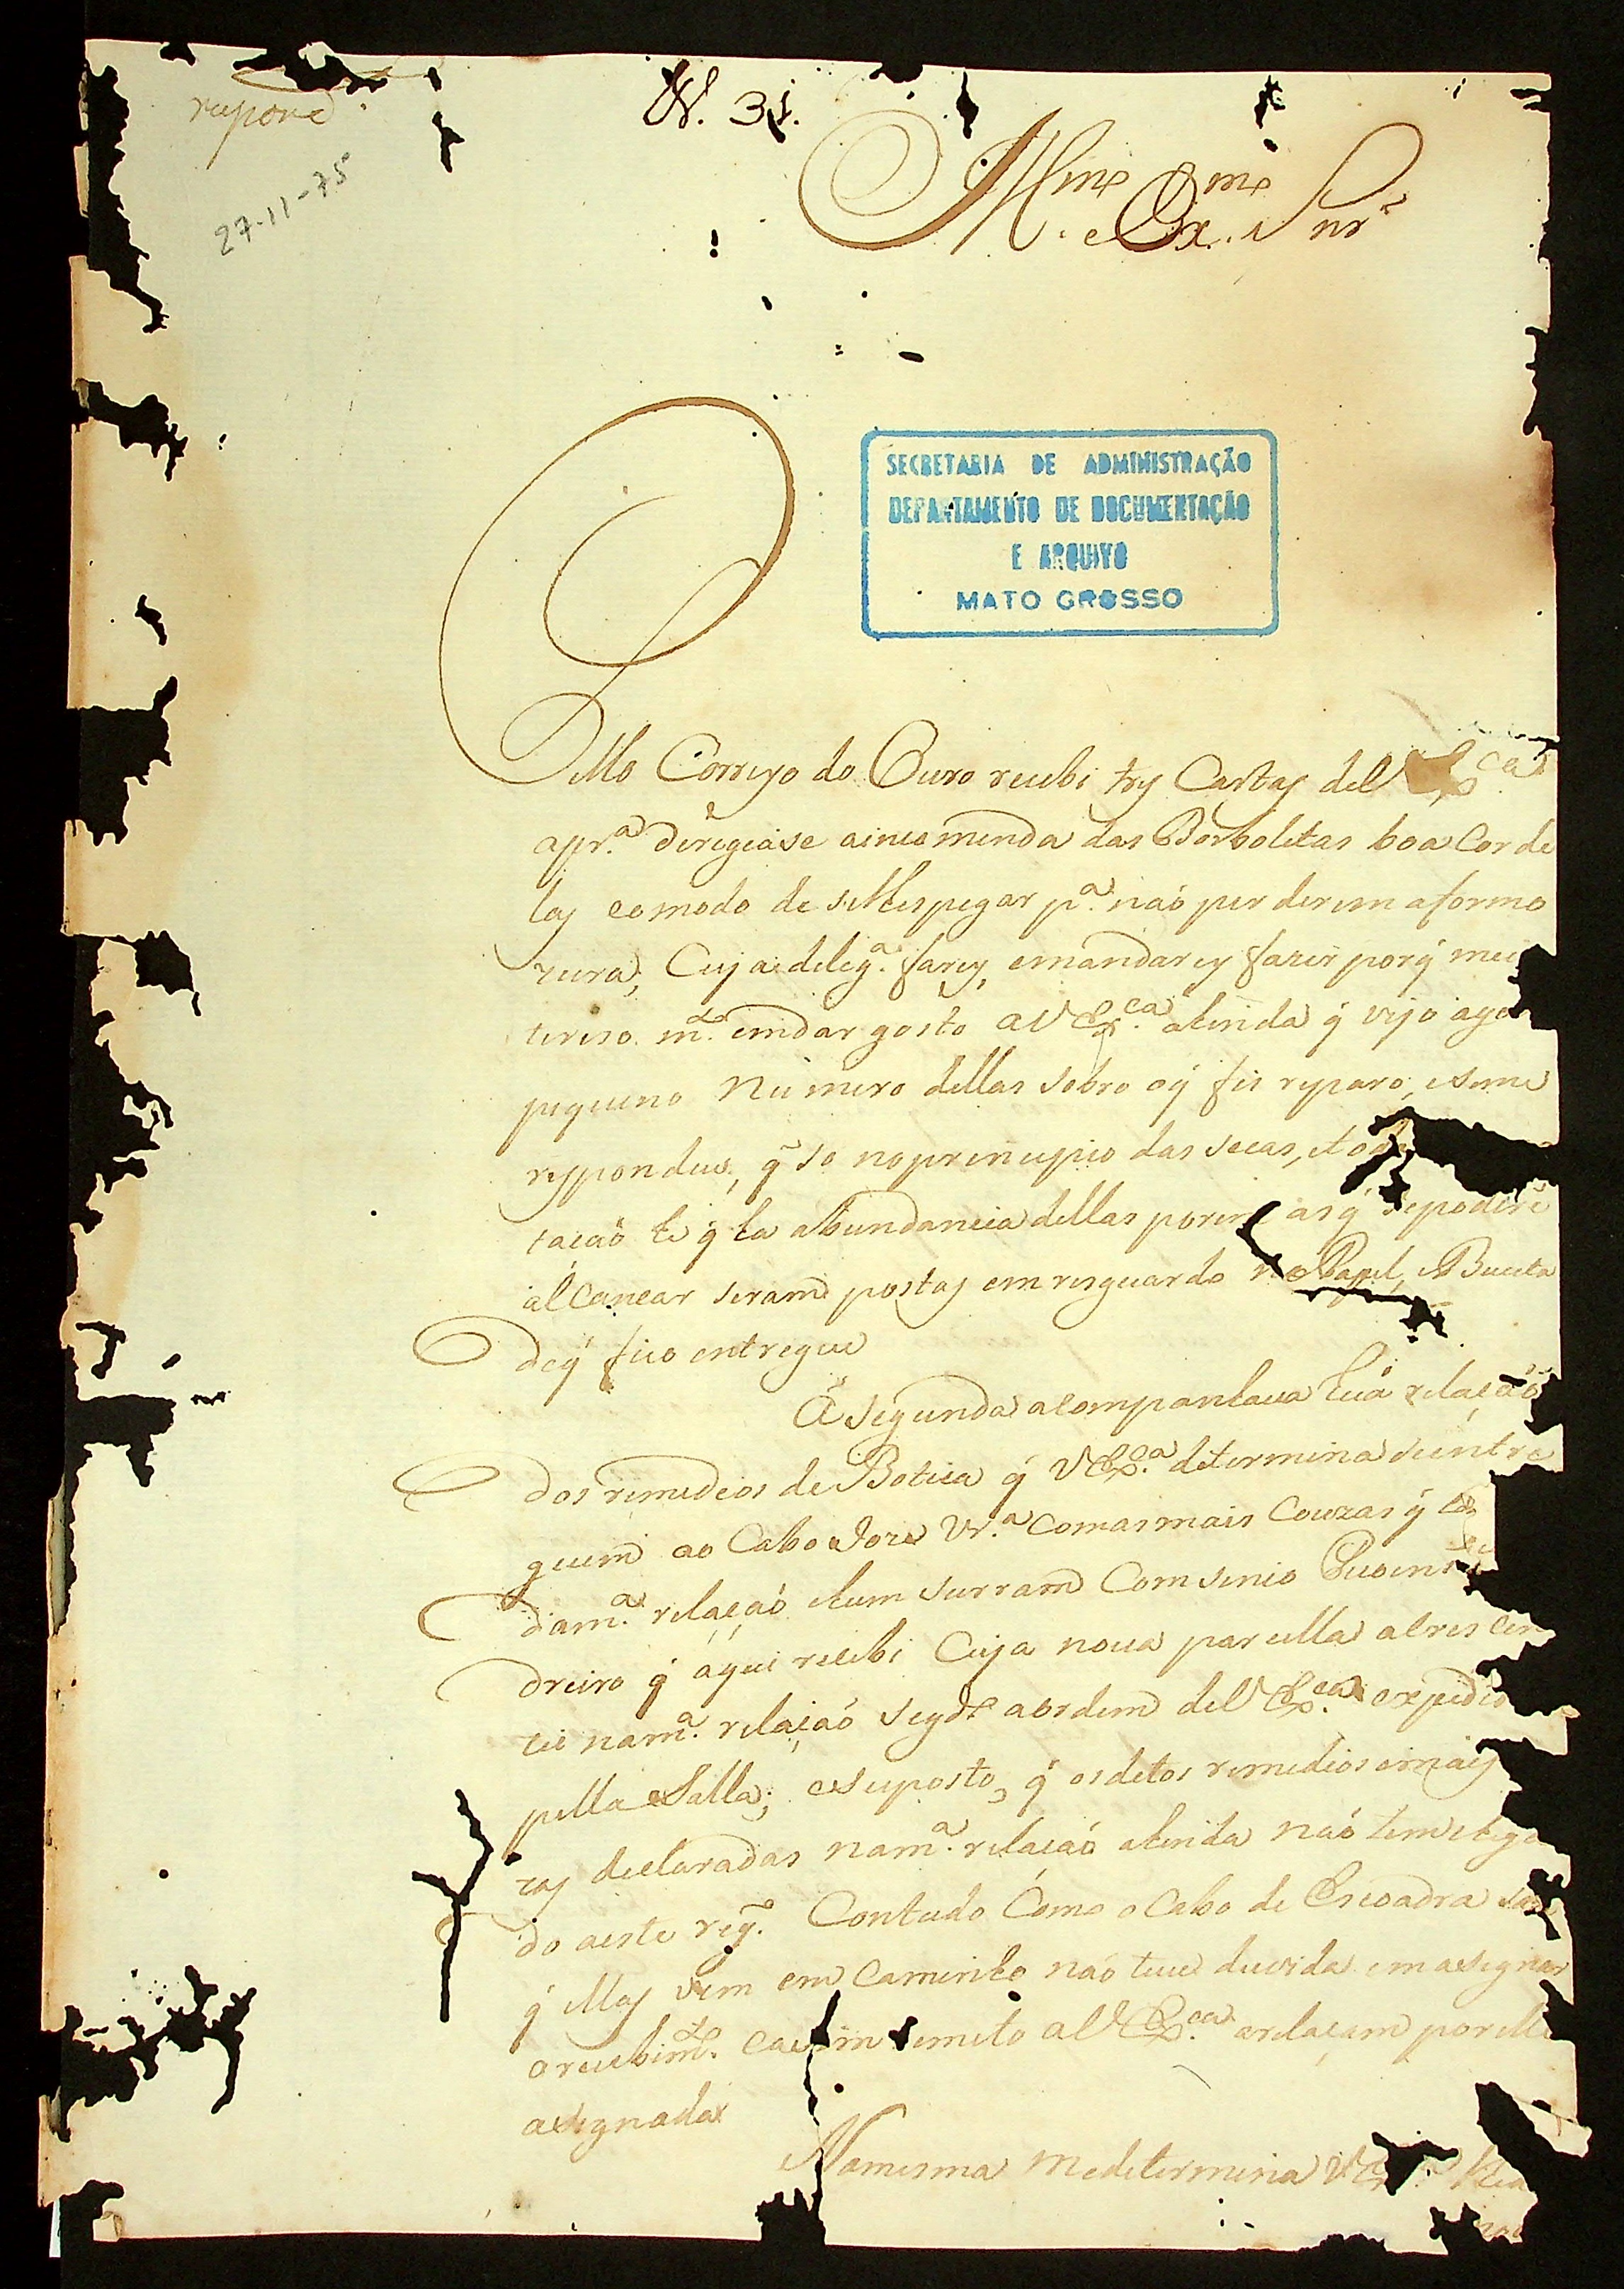 respond.ª
N. 31.
27-11-75
Illmo. e Exmo. Snr.
SECRETARIA DE ADMINISTRAÇÃO
DEPARTAMENTO DE DOCUMENTAÇÃO
E ARQUIVO
MATO GROSSO
Pello Correyo do Ouro recebi trez Cartas de V Exca
a pr.ª deregease aincomenda das Borboletas boa Cor de
las eo modo de selhes pegar p.ª náo perderem aformo
zura, Cuja delig.ª farey, emandarey fazer porq̃
tereso m.to emdar gosto a V Ex.ca ainda q̃ vejo
pequeno Numero dellas sobre oq̃ fis reparo, eseme
respondeo, q̃ so noprincipio das secas,
tacáo he q̃ ha abundancia dellas porem as q̃ sepoderẽ
alcancar seram postas em resguardo no Papel, e Buceta
deq̃ fico entregue
A segunda acompanhava huã relacaó
dos remedios de Botica q̃ V Ex.ca determina seentre
guem ao Cabo Joze Vr.ª comasmais Couzas q̃
dam.ª relacáó hum surram Comsinco
dreiro q̃ aqui recebi Cuja nova parcella acrescen
tei nam.ª relacáó segdo aordem de V Ex.ca expedi
pella Salla; esuposto, q̃ osditos remedios emais
zas declaradas nam.ª relacáó ainda náó tem chega
do aeste reg.º Contudo Como o Cabo de Escoadra
q̃ ellas vem em Caminho náo teve duvida em asegnar
orecebim.to eassim remeto a V Ex.ca arelaçam por elle
asegnada
Namesma medetermina V Ex.ca